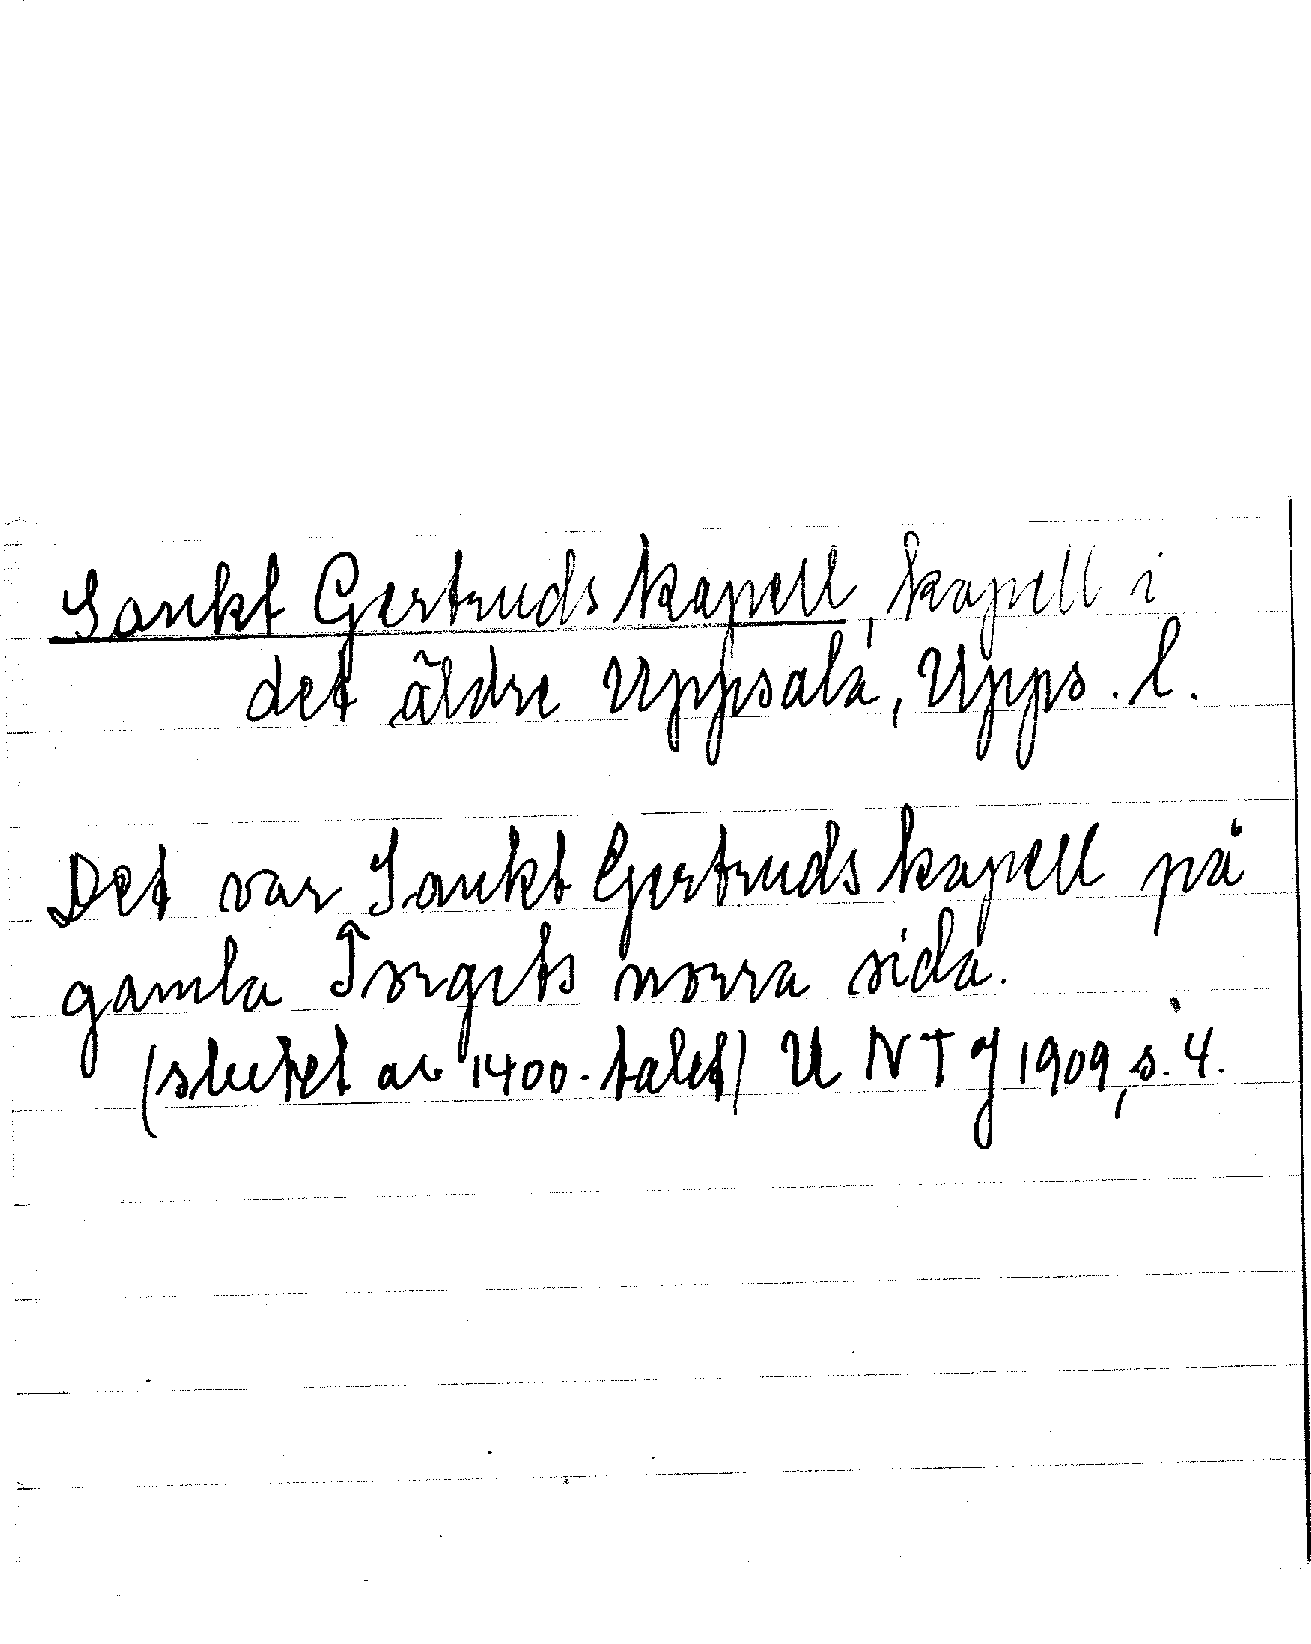 Sankt Gertruds kapell, kapell i
det äldre Uppsala, Upps. l.
Det var Sankt Gertruds kapell på
gamla Torgets norra sida.
(slutet av 1400-talet) U N T J 1909, s. 4.